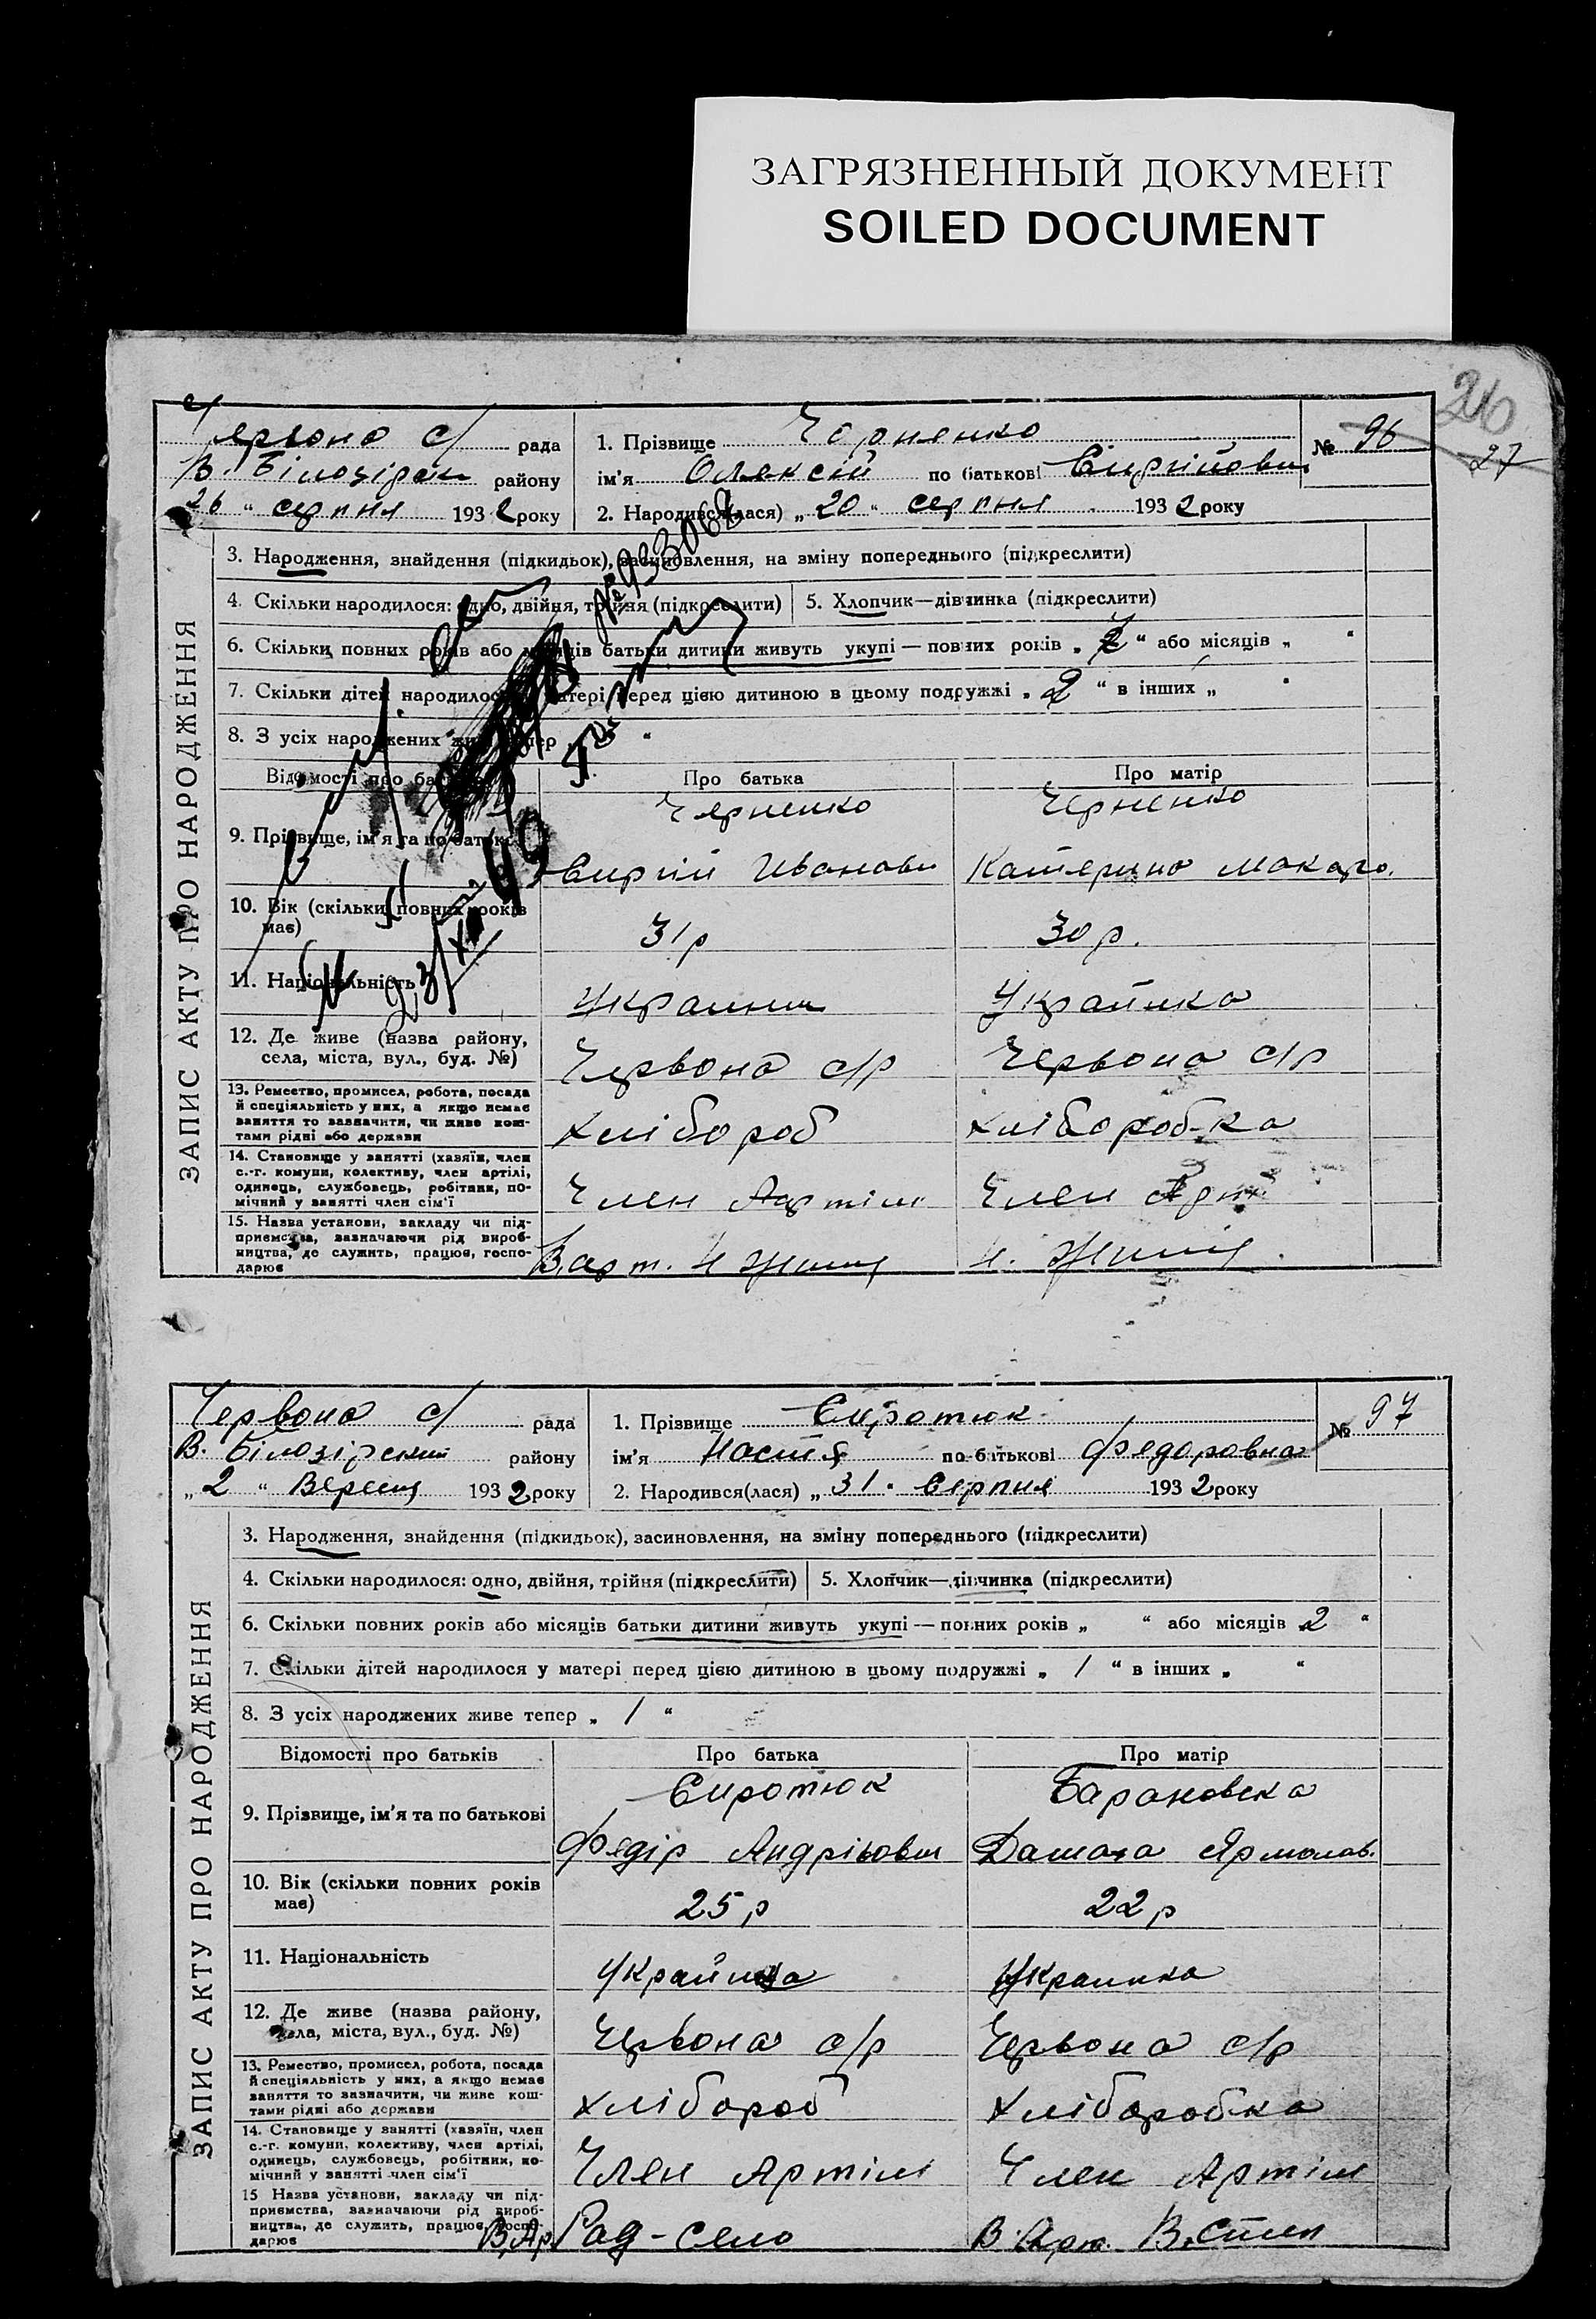 ЗАГРЯЗНЕННЫЙ ДОКУМЕНТ
SOILED DOCUMENT
26
27
ЗАПИС АКТУ ПРО НАРОДЖЕННЯ
Червона с/ рада
В. Білозірськ району
26 " серпня 1932 року
1. Прізвище Чорненко
№ 96
ім'я Олексій по батькові
2. Народився(лася) „ 20 " серпня 1932 року
№ 933062
3. Народження, знайдення (підкидьок), засиновлення, на зміну попереднього (підкреслити)
4. Скільки народилося: одно, двійня, трійня (підкреслити)
5. Хлопчик—дівчинка (підкреслити)
6. Скільки повних років або місяців батьки дитини живуть укупі — повних років „ 7 " або місяців „ "
7. Скільки дітей народилося у матері перед цією дитиною в цьому подружжі „ 2 " в інших „ "
8. З усіх народжених живе тепер "
Відомості про батьків
Про батька
Про матір
9. Прізвище, ім'я та по батькові
Черненко
Черненко
Иванови
Катерина Макаро.
10. Вік (скільки повних років має)
31 р
30 р.
11. Національність
Украинец
Украйнка
12. Де живе (назва району,
села, міста, вул., буд. №)
Червона с/р
Червона с/р
13. Ремество, промисел, робота, посада
й спеціяльність у них, а якщо немає
заняття то зазначити, чи живе кош-
тами рідні або держави
Хлібороб
хліборобка
14. Становище у занятті (хазяїн, член
с.-г. комуни, колективу, член артілі,
одинець, службовець, робітник, по-
мічний у занятті член сім'ї
Член Артілі
Член Арт
15. Назва установи, закладу чи під-
приємства, зазначаючи рід вироб-
ництва, де служить, працює, госпо-
дарює
В. арт. Н Життя
Н. Життя
ЗАПИС АКТУ ПРО НАРОДЖЕННЯ
Червона с/ рада
В. Білозірський району
„ 2 " Вересня 1932 року
1. Прізвище Сиротюк
№ 97
ім'я Настя по батькові Федоровна
2. Народився(лася) „ 31 " Серпня 1932 року
3. Народження, знайдення (підкидьок), засиновлення, на зміну попереднього (підкреслити)
4. Скільки народилося: одно, двійня, трійня (підкреслити)
5. Хлопчик—дівчинка (підкреслити)
6. Скільки повних років або місяців батьки дитини живуть укупі — повних років „ " або місяців 2 "
7. Скільки дітей народилося у матері перед цією дитиною в цьому подружжі „ 1 " в інших „ "
8. З усіх народжених живе тепер „ 1 "
Відомості про батьків
Про батька
Про матір
9. Прізвище, ім'я та по батькові
Сиротюк
Барановска
Федір Андрійови
Дашка Ярмолав.
10. Вік (скільки повних років
має)
25 р
22 р
11. Національність
Украйнка
Украинка
12. Де живе (назва району,
села, міста, вул., буд. №)
Червона с/р
Червона с/р
13. Ремество, промисел, робота, посада
й спеціяльність у них, а якщо немає
заняття то зазначити, чи живе кош-
тами рідні або держави
хлібороб
хліборобка
14. Становище у занятті (хазяїн, член
с.-г. комуни, колективу, член артілі,
одинець, службовець, робітник, по-
мічний у занятті член сім'ї
Член Артілі
Член Артілі
15 Назва установи, закладу чи під-
приємства, зазначаючи рід вироб-
ництва, де служить, працює, госпо-
дарює
В. Ар Рад-село
В. Арт. В. Степ